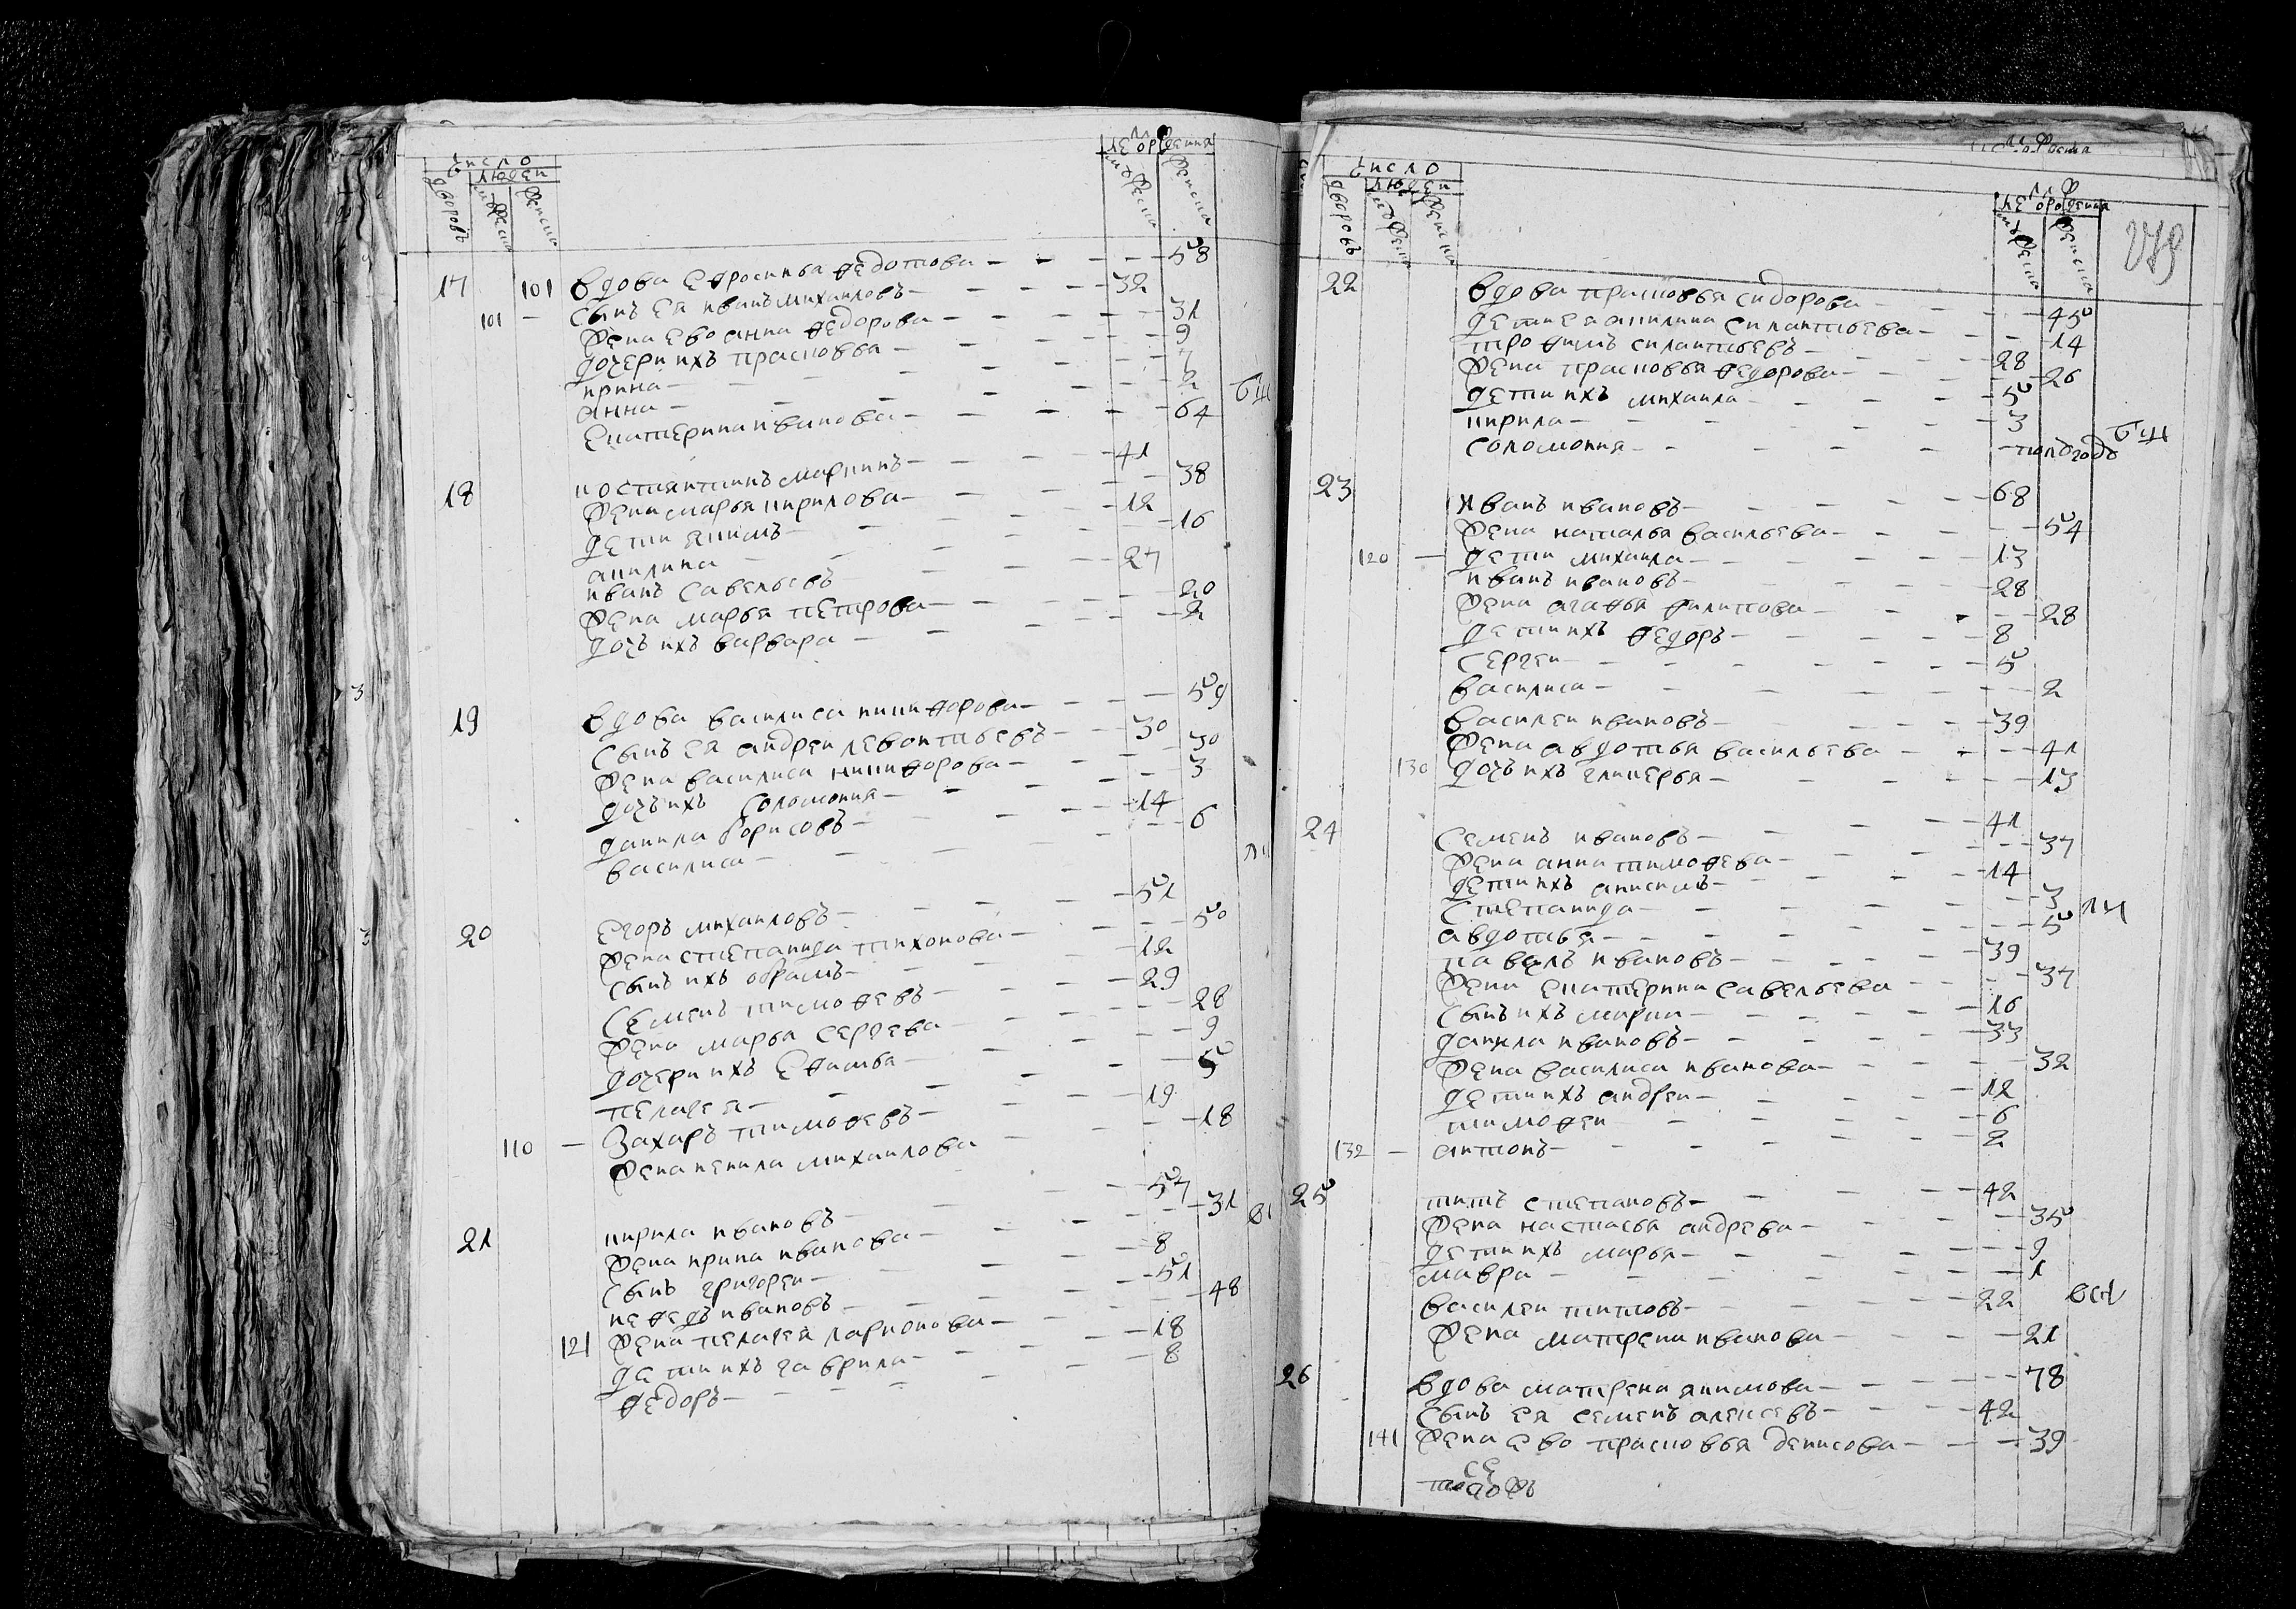 число
лѣ от рожденiя
дворовъ
людей
мужеска
женска
мужеска
женска
17 101 вдова ефросинья федотова - - - 58
101 - сынъ ея иванъ михаиловъ - - - 32
жена ево анна федорова - - - 31
дочери ихъ прасковья - - - 9
ирина - - - 7
анна - - - 2
екатерина иванова - - - 64
18 костянтинъ маркинъ - - - 41
жена марья кирилова - - - 38
дети якимъ - - - 12
акилина - - - 16
иванъ савельевъ - - - 27
жена марья петрова - - - 20
дочъ ихъ варвара - - - 2
19 вдова василиса никифорова - - - 59
сынъ ея андреи левонтьевъ - - - 30
жена василиса никифорова - - - 30
дочъ ихъ соломония - - - 3
данила борисовъ - - - 14
василиса - - - 6
20 егоръ михаиловъ - - - 51
жена степанида тихонова - - - 50
сынъ ихъ обрамъ - - - 12
семенъ тимофевъ - - - 29
жена марья сергева - - - 28
дочери ихъ ефимья - - - 9
пелагея - - - 5
захаръ тимофевъ - - - 19
110 - жена ненила михаилова - - - 18
21 кирила ивановъ - - - 57
жена ирина иванова - - - 31
сынъ григореи - - - 8
нефедъ ивановъ - - - 51
121 жена пелагея ларионова - - - 48
дети ихъ гаврила - - - 18
федоръ - - - 8
число
лѣ от рожденiя
дворовъ
людей
мужеска
женска
мужеска
женска
279
22 вдова прасковья сидорова - - - 45
дети ея акилина силантьева - - - 14
трофимъ силантьевъ - - - 28
жена прасковья федорова - - - 26
дети ихъ михаила - - - 5
кирила - - - 3
соломония - - - полгоду
23 иванъ ивановъ - - - 68
жена наталья васильева - - - 54
120 - дети михаила - - - 13
иванъ ивановъ - - - 28
жена агафья филипова - - - 28
дети ихъ федоръ - - - 8
сергеи - - - 5
василиса - - - 2
василеи ивановъ - - - 39
жена авдотья васильева - - - 41
130 дочъ ихъ гликерья - - - 13
24 семенъ ивановъ - - - 41
жена анна тимофева - - - 37
дети ихъ анисимъ - - - 14
степанида - - - 3
авдотья - - - 5
павелъ ивановъ - - - 39
жена екатерина савельева - - - 37
сынъ ихъ марка - - - 16
данила ивановъ - - - 33
жена василиса иванова - - - 32
дети ихъ андреи - - - 12
тимофеи - - - 6
132 - антонъ - - - 2
25 титъ степановъ - - - 42
жена настасья андрева - - - 35
дети ихъ марья - - - 9
мавра - - - 1
василеи титовъ - - - 22
жена матрена иванова - - - 21
26 вдова матрена якимова - - - 78
сынъ ея семенъ алексевъ - - - 42
141 жена ево прасковья денисова - - - 39